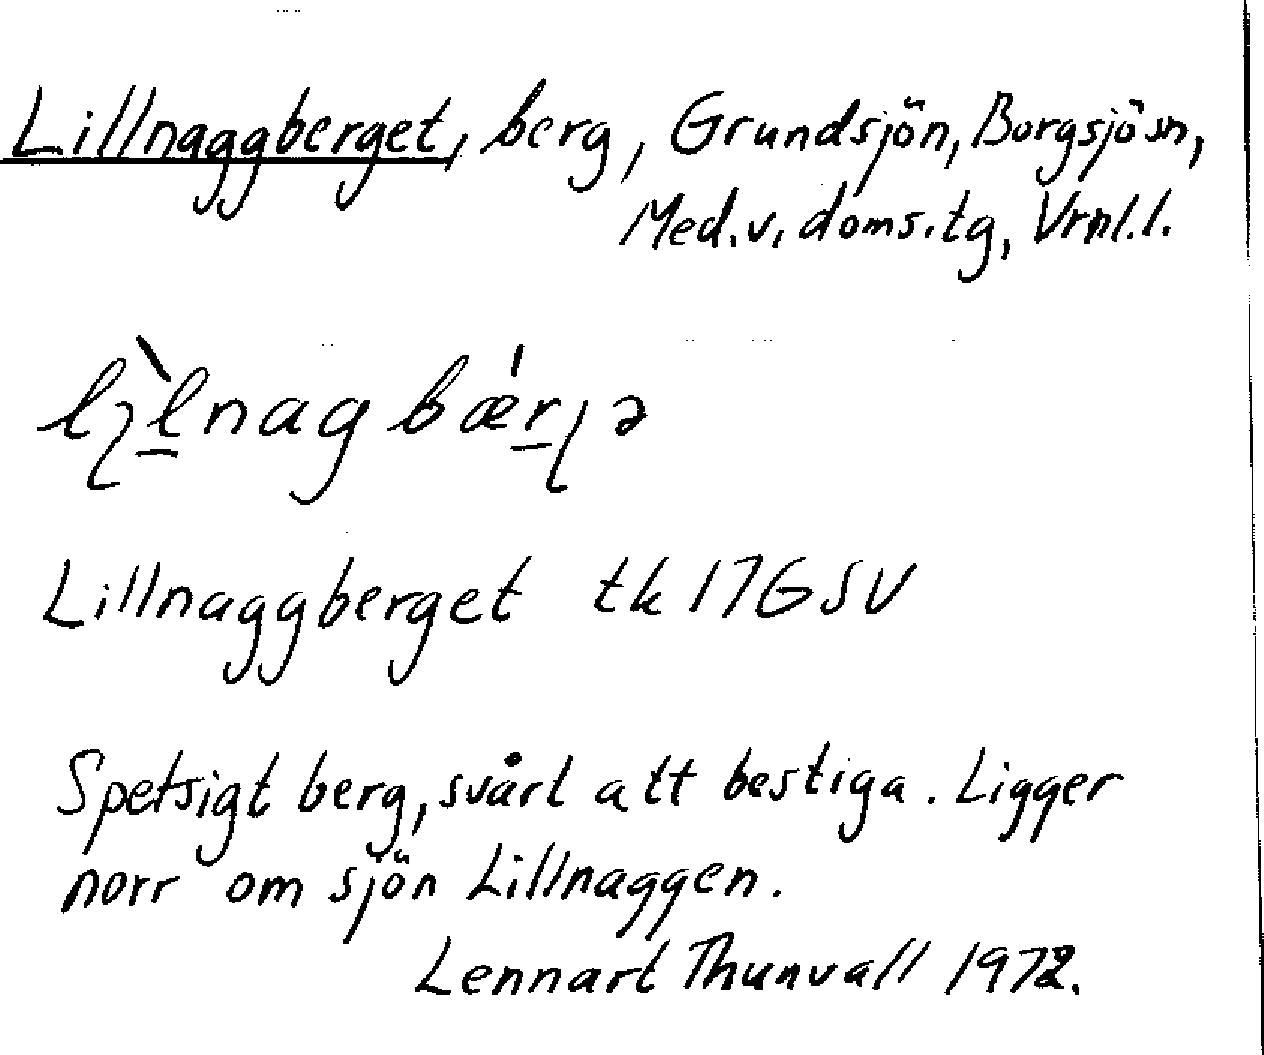 Lillnaggberget, berg, Grundsjön, Borgsjösn,
Med.v. doms.tg, Vrnl.l.
Lillnaggberget tk 17G SV
Spetsigt berg, svårt att bestiga. Ligger
norr om sjön Lillnaggen.
Lennart Thunvall 1972.